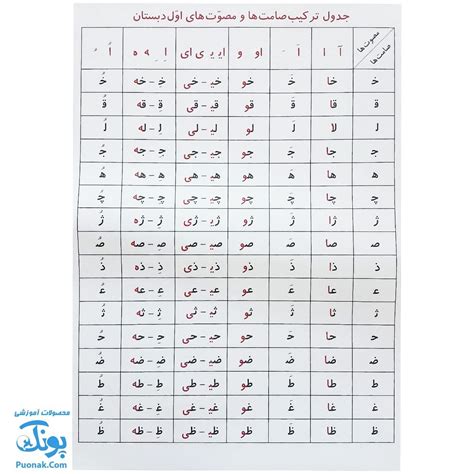 جدول ترکیب صامت‌ها و مصوّت‌های اوّل دبستان
مصوّت‌ها
صامت‌ها
آ ا اَ ـَ او و ایـ یـ ی ای اِ ـِ ـه ه اُ ـُ
خ خا خَ خو خیـ - خی خِ - خه خُ
ق قا قَ قو قیـ - قی قِ - قه قُ
ل لا لَ لو لیـ - لی لِ - له لُ
ج جا جَ جو جیـ - جی جِ - جه جُ
ه ها هَ هو هیـ - هی هِ - هه هُ
چ چا چَ چو چیـ - چی چِ - چه چُ
ژ ژا ژَ ژو ژیـ - ژی ژِ - ژه ژُ
ص صا صَ صو صیـ - صی صِ - صه صُ
ذ ذا ذَ ذو ذیـ - ذی ذِ - ذه ذُ
ع عا عَ عو عیـ - عی عِ - عه عُ
ث ثا ثَ ثو ثیـ - ثی ثِ - ثه ثُ
ح حا حَ حو حیـ - حی حِ - حه حُ
ض ضا ضَ ضو ضیـ - ضی ضِ - ضه ضُ
ط طا طَ طو طیـ - طی طِ - طه طُ
غ غا غَ غو غیـ - غی غِ - غه غُ
ظ ظا ظَ ظو ظیـ - ظی ظِ - ظه ظُ
محصولات آموزشی
پونک
Puonak.Com